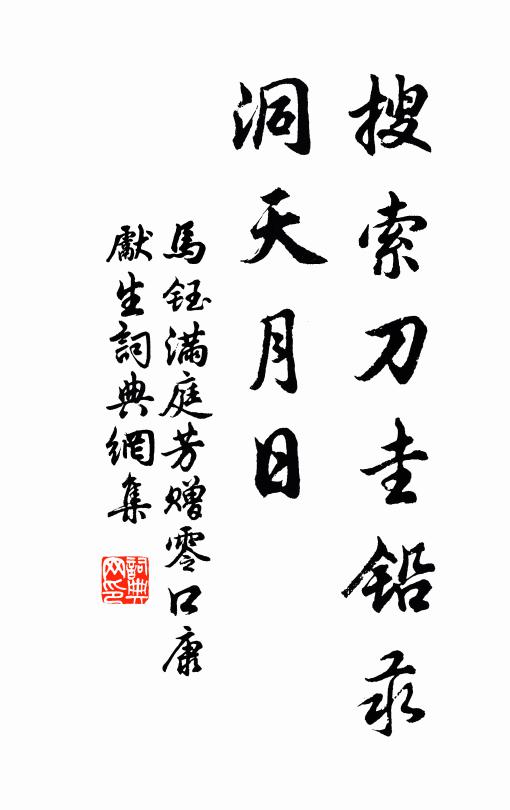 搜索刀圭铅汞
洞天月日
馬鈺满庭芳赠零口康
獻生詞典網集
詞典网印